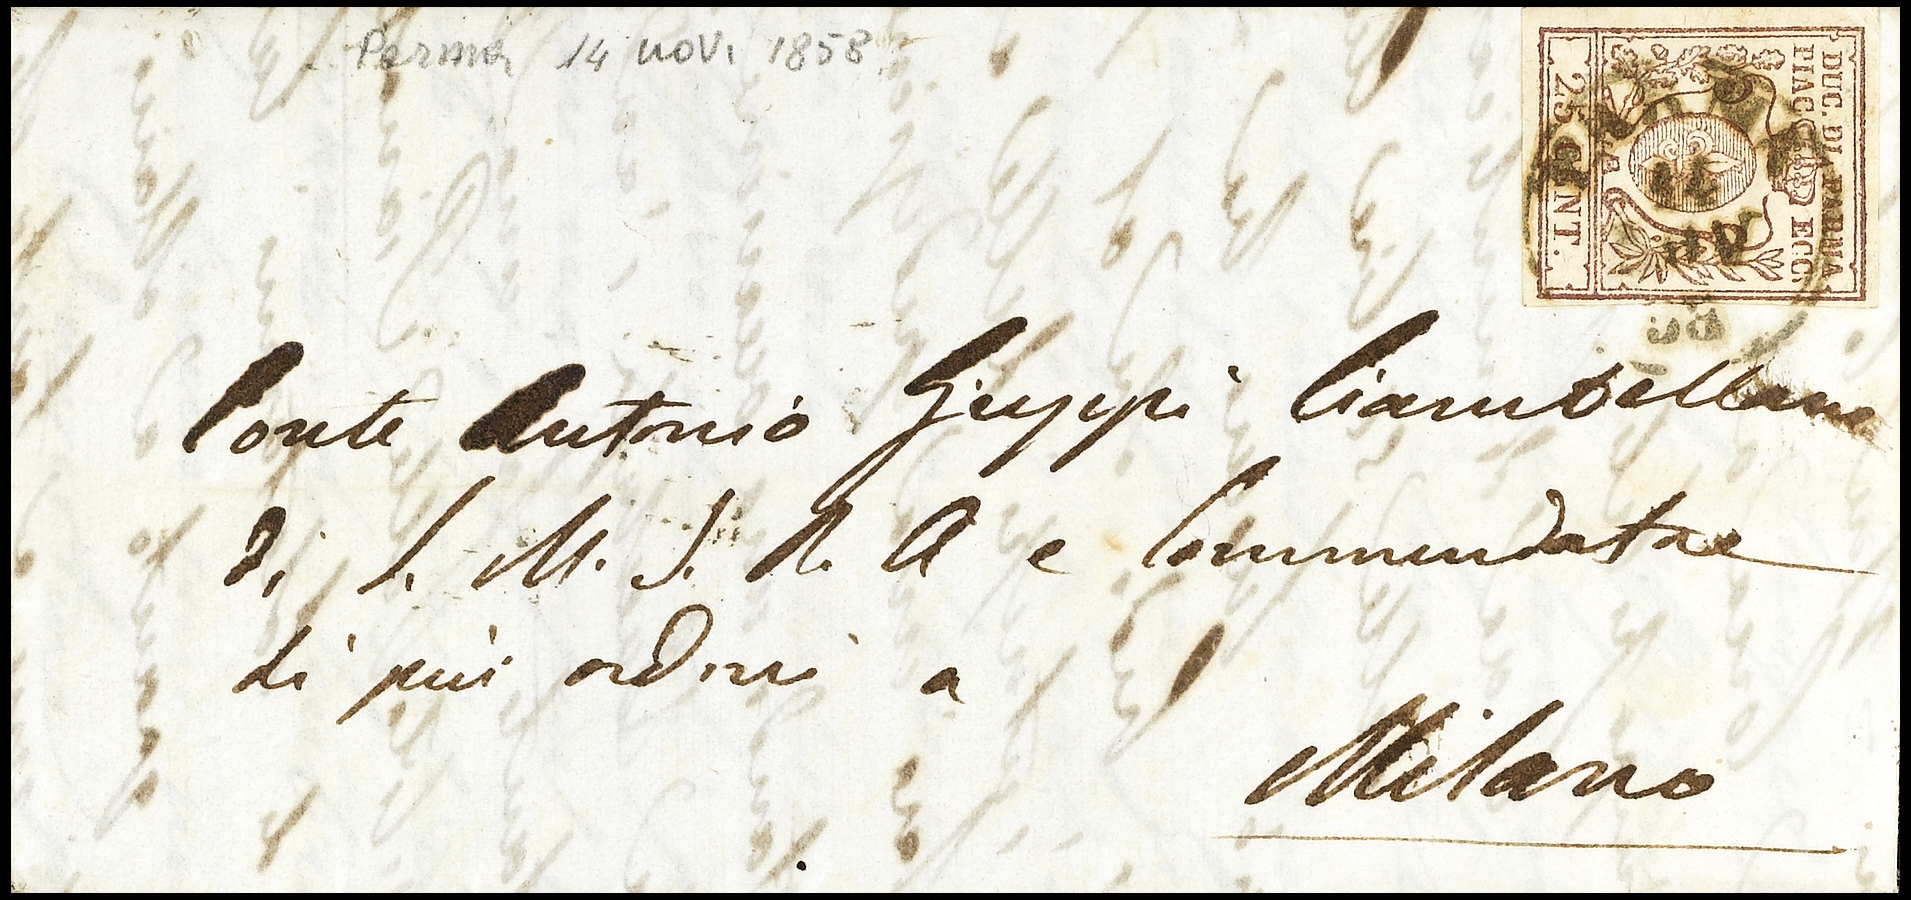 Parma 14 nov. 1858
DUC. DI PARMA
PIAC. ECC.
25 CENT.
58
Conte Antonio Greppi Ciambellano
Di S. M. I. R. A e Commendatore
di più ordini a
Milano